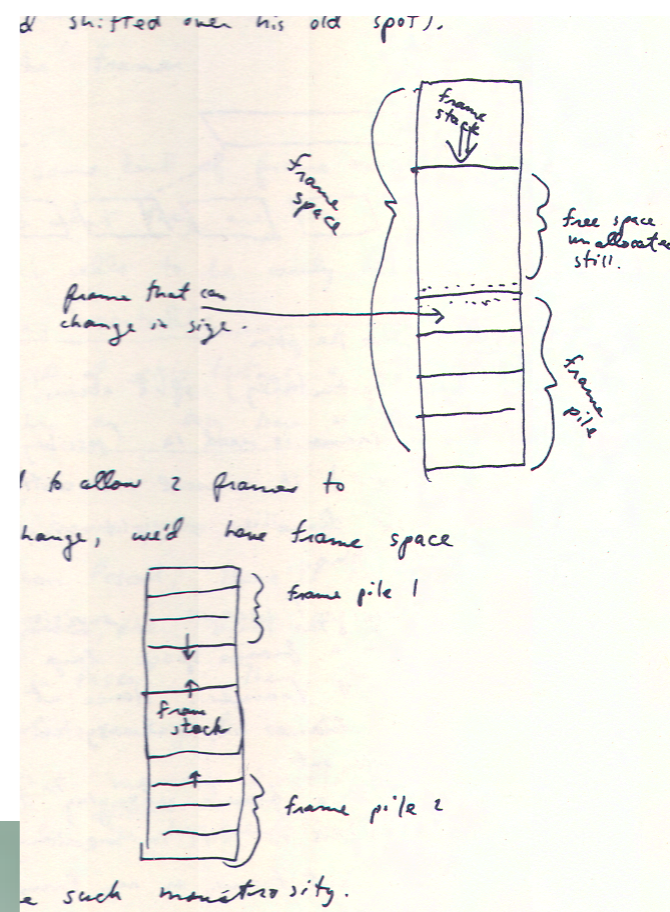 d shifted over his old spot).
frame
stack
frame
space
free space
unallocated
still.
frame that can
change in size.
frame
pile
to allow 2 frames to
hange, we'd have frame space
frame pile 1
frame
stack
frame pile 2
e such monstrosity.